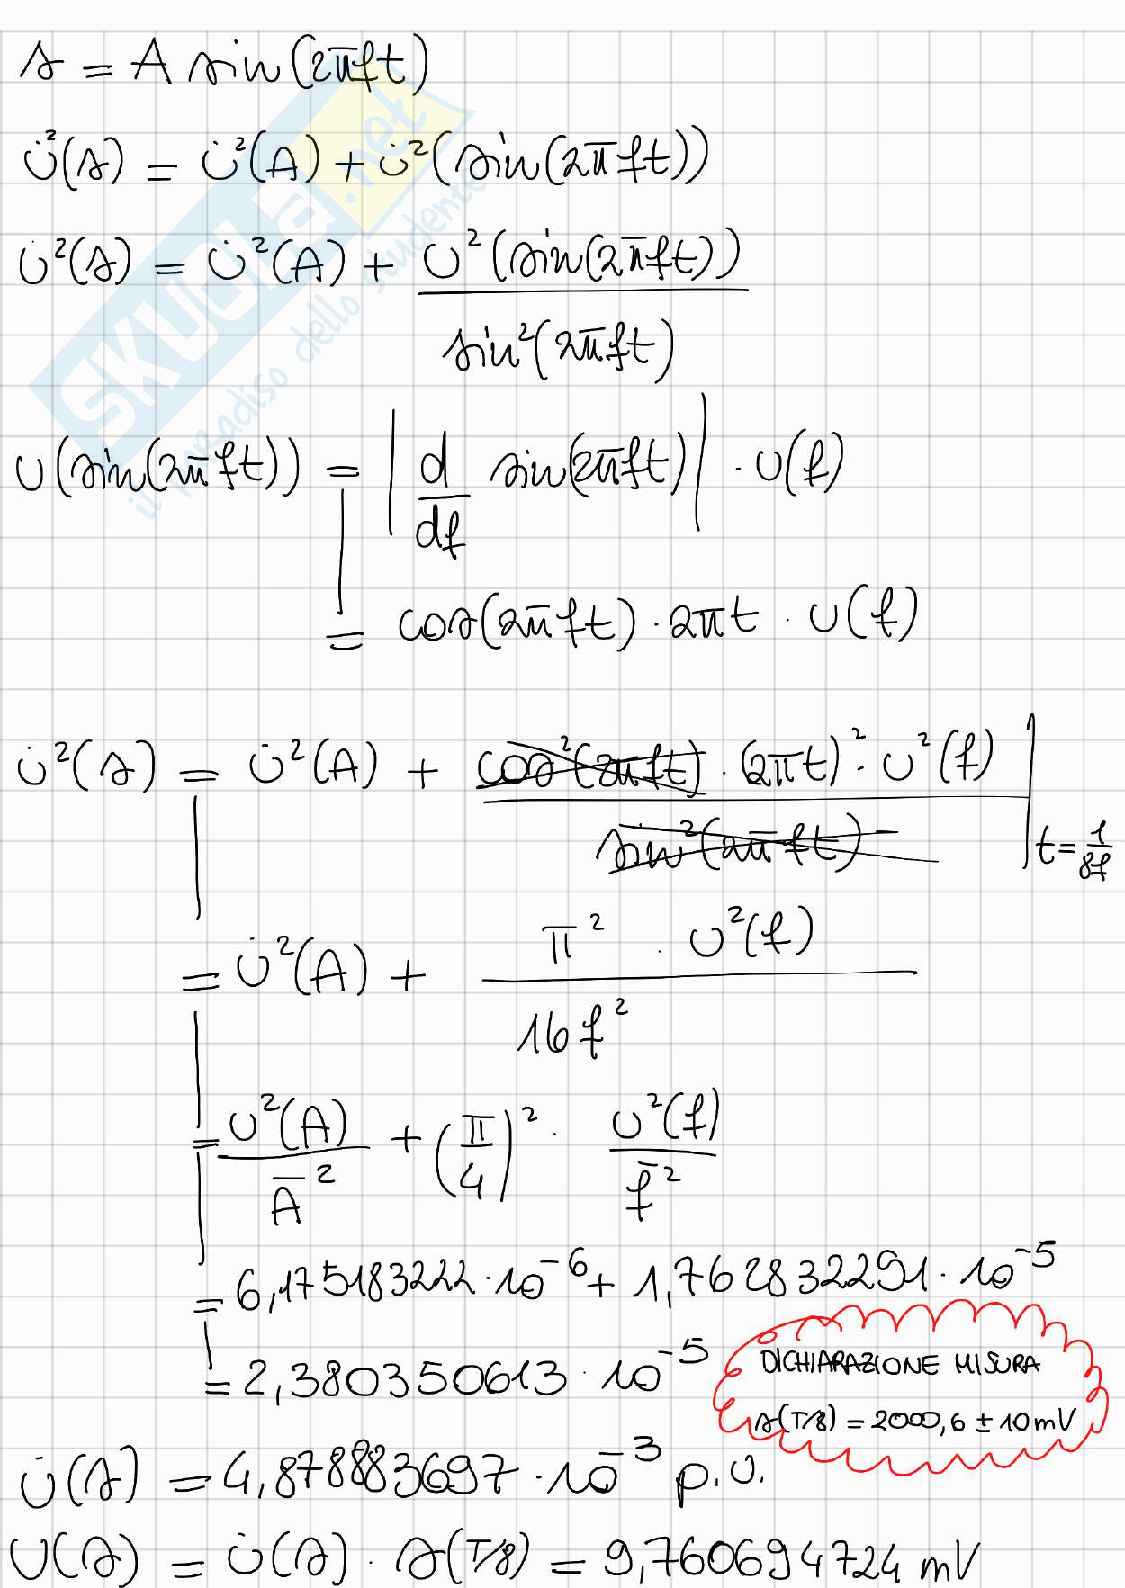 s = A sin(2πft)
u̇²(s) = u̇²(A) + u̇²(sin(2πft))
u̇²(s) = u̇²(A) + u²(sin(2πft)) / sin²(2πft)
u(sin(2πft)) = | d/df sin(2πft) | · u(f)
= cos(2πft) · 2πt · u(f)
u̇²(s) = u̇²(A) + cos²(2πft) · (2πt)² · u²(f) / sin²(2πft) | t = 1/8f
= u̇²(A) + π² · u²(f) / 16f²
= u²(A) / Ā² + (π/4)² · u²(f) / f̄²
= 6,175183222 · 10⁻⁶ + 1,762832291 · 10⁻⁵
= 2,380350613 · 10⁻⁵
DICHIARAZIONE MISURA
s(T/8) = 2000,6 ± 10 mV
u̇(s) = 4,878883697 · 10⁻³ p.u.
U(s) = u̇(s) · s(T/8) = 9,760694724 mV
SKUOLA.net
il paradiso dello studente